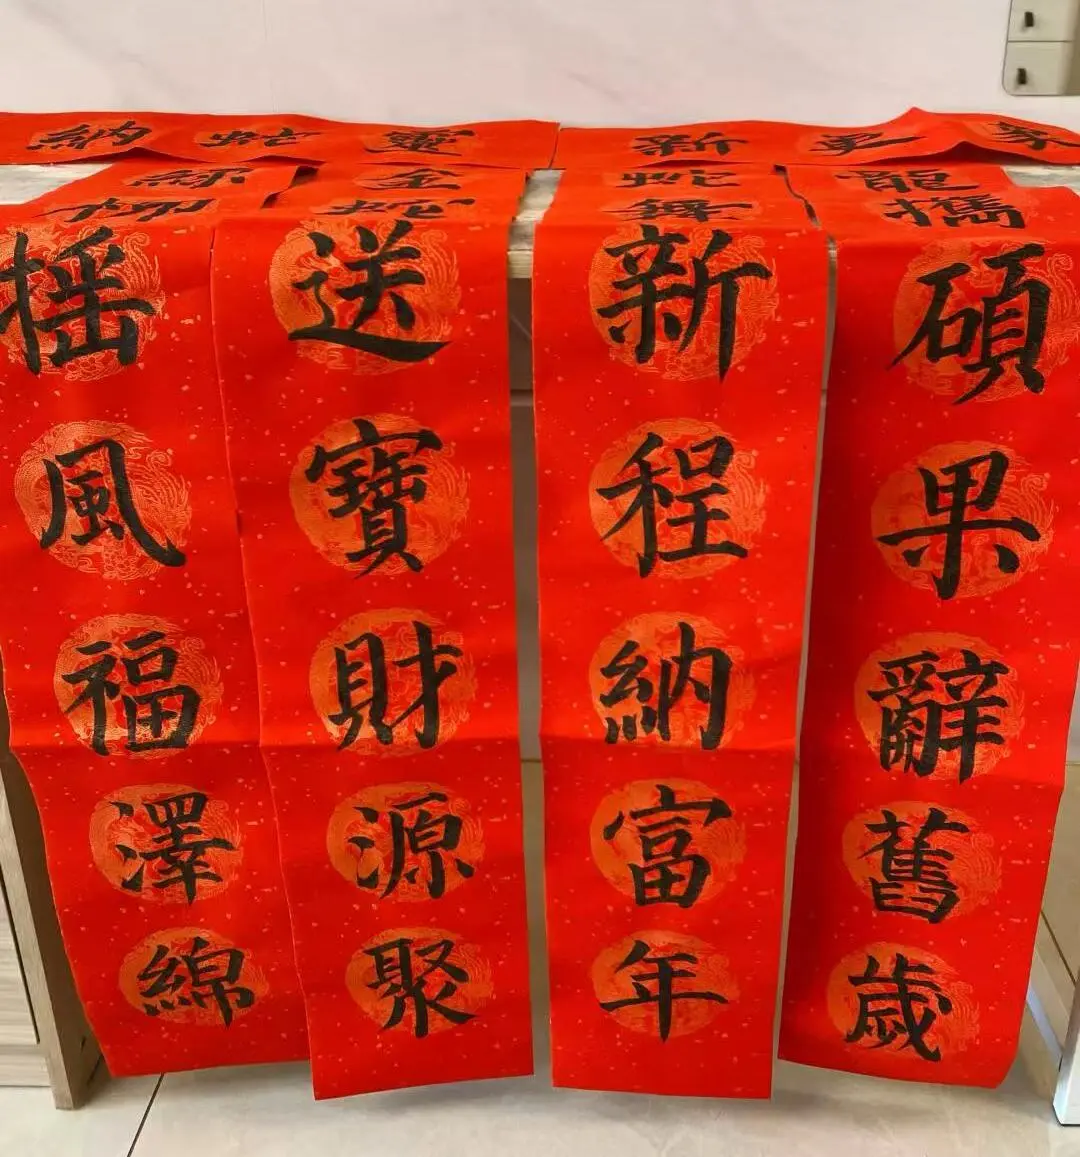 象更新
靈蛇納
龍攜碩果辭舊歲
蛇舞新程納富年
金蛇送寶財源聚
綠柳摇風福澤綿